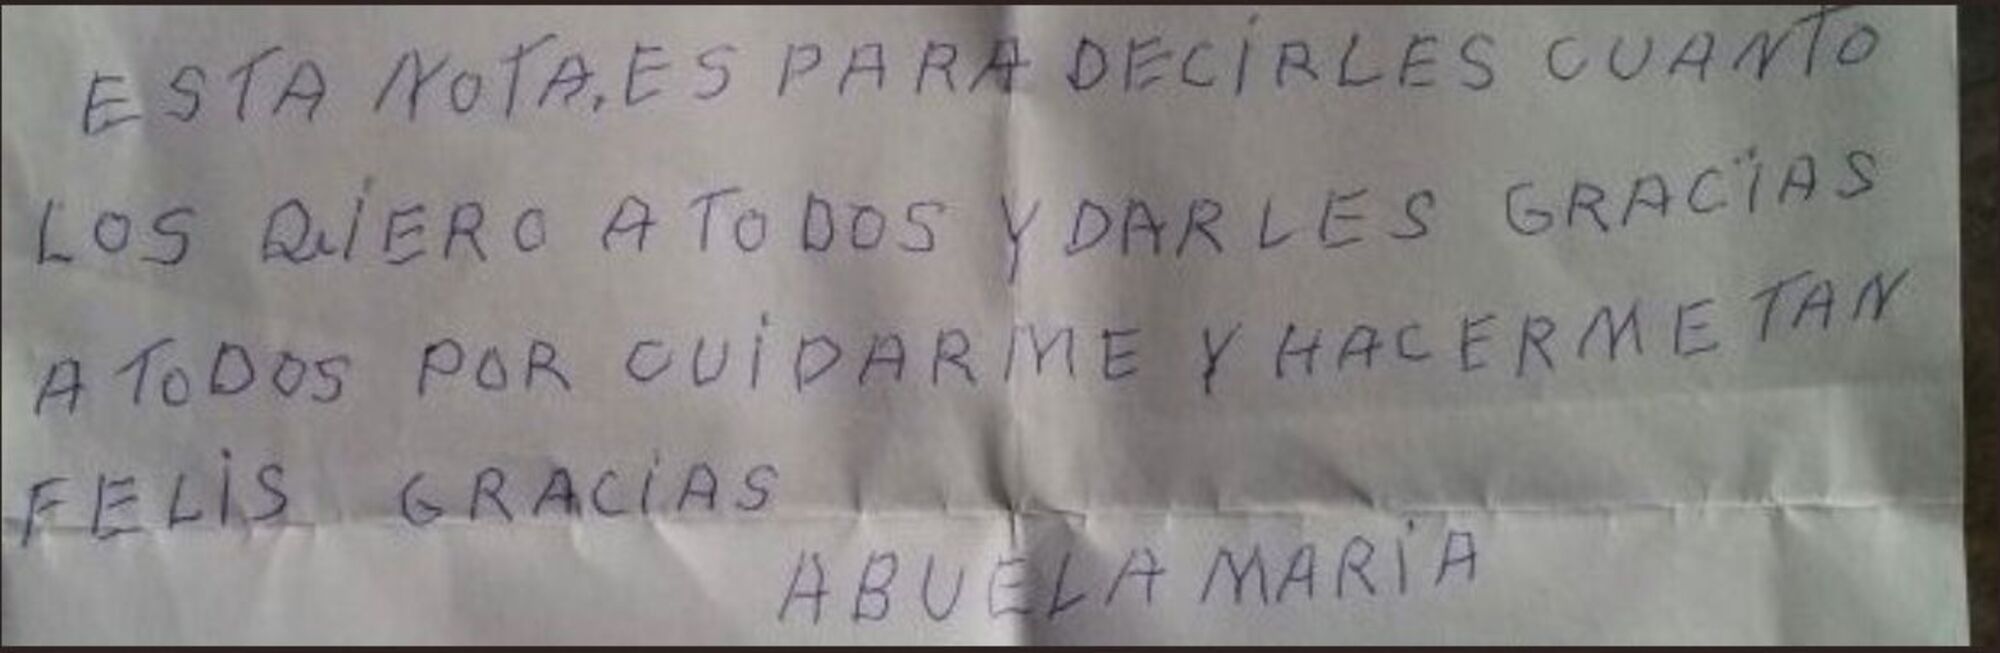 ESTA NOTA. ES PARA DECIRLES CUANTO
LOS QUIERO A TODOS Y DARLES GRACIAS
A TODOS POR CUIDARME Y HACERME TAN
FELIS GRACIAS
ABUELA MARIA